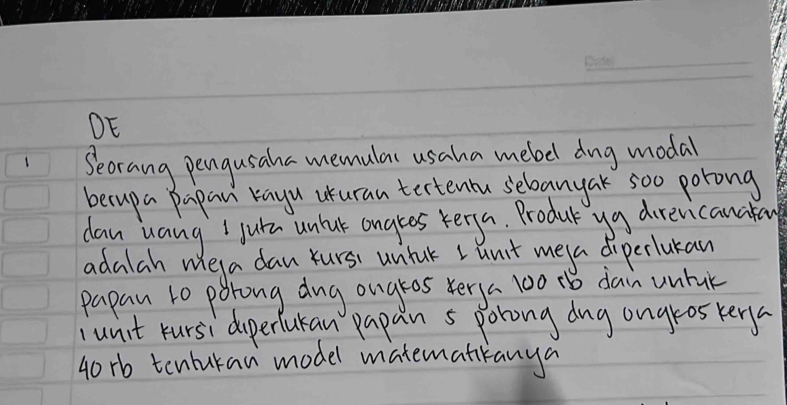 DE
1 Seorang pengusaha memulai usaha mebel dng modal
berupa papan kayu ukuran tertentu sebanyak 500 potong
dan uang 1 juta untuk ongkos kerja. Produk yg direncanakan
adalah meja dan kursi untuk 1 unit meja diperlukan
papan 10 potong dng ongkos kerja 100 rb dan untuk
1 unit kursi diperlukan papan 5 potong dng ongkos kerja
40 rb tentukan model matematikanya